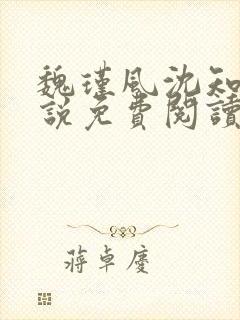 魏瑾風沈知
說免費閱讀
蔣卓慶